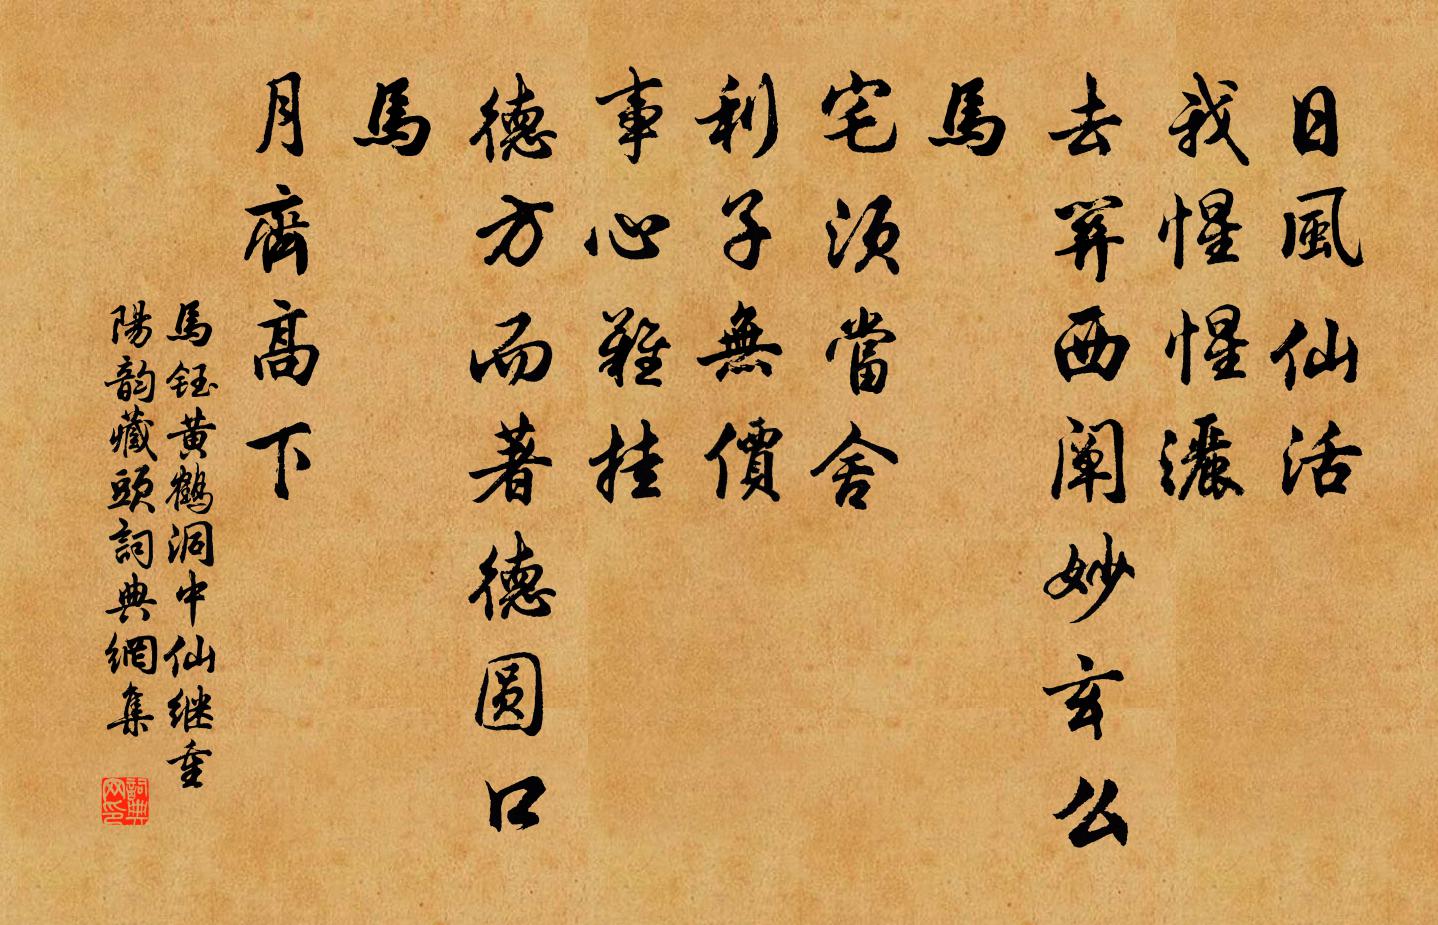 日風仙活
我惺惺灑
去箅西阐妙玄么
馬
宅须當舍
利子無價
事心難挂
德方而著德圆口
馬
月齊高下
馬鈺黄鶴洞中仙继重
陽韵藏頭詞典網集
詞典
网印